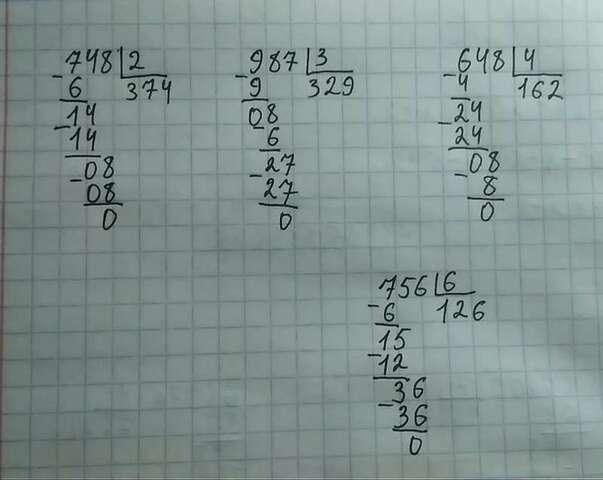 748 2
- 6 374
14
- 14
08
- 08
0
987 3
- 9 329
08
- 6
27
- 27
0
648 4
- 4 162
24
- 24
08
- 8
0
756 6
- 6 126
15
- 12
36
- 36
0